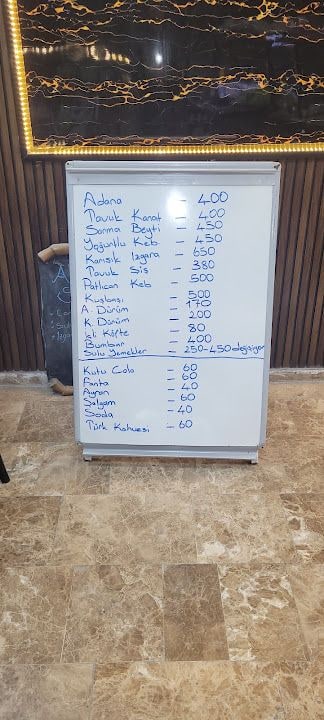 Adana - 400
Tavuk Kanat - 400
Sarma Beyti - 450
Yoğurtlu Keb. - 450
Karışık Izgara - 650
Tavuk Şiş - 380
Patlıcan Keb - 500
Kuşbaşı - 500
A. Dürüm - 170
K. Dürüm - 200
İçli Köfte - 80
Bumbar - 400
Sulu Yemekler - 250-450 değişiyor
Kutu Cola - 60
Fanta - 60
Ayran - 40
Şalgam - 60
Soda - 40
Türk Kahvesi - 60